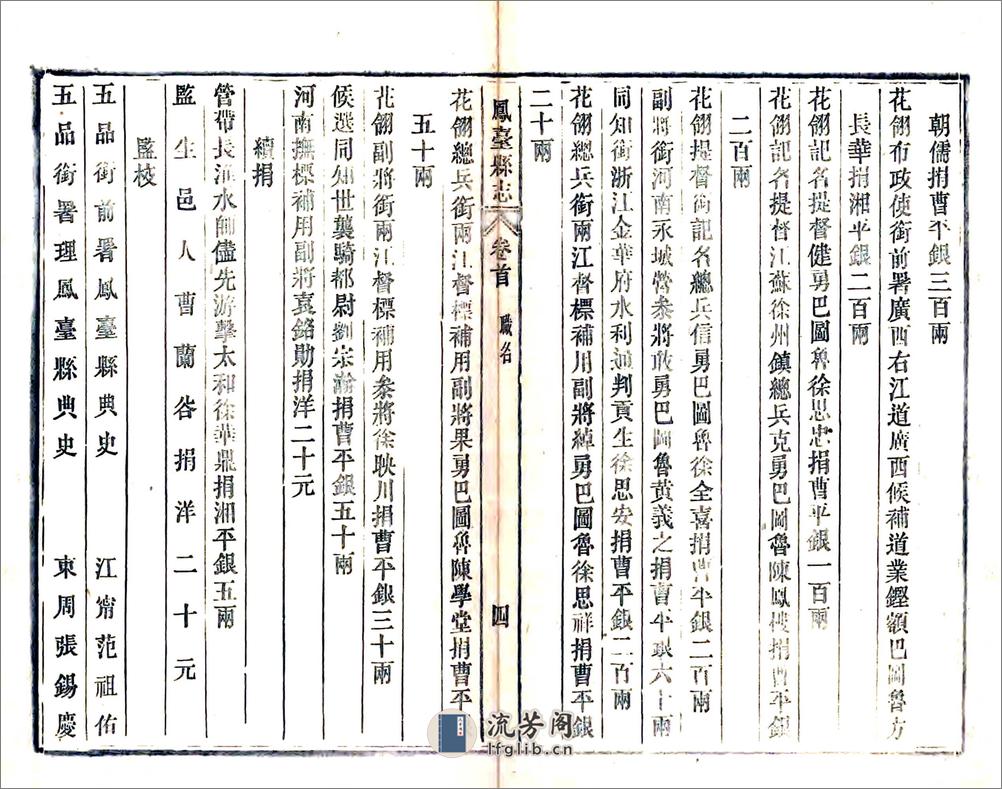 朝儒捐曹平銀三百兩
花翎布政使銜前署廣西右江道廣西候補道業鏗額巴圖魯方
長華捐湘平銀二百兩
花翎記名提督健勇巴圖魯徐思忠捐曹平銀一百兩
花翎記名提督江蘇徐州鎮總兵克勇巴圖魯陳鳳樓捐曹平銀
二百兩
花翎提督銜記名總兵信勇巴圖魯徐全喜捐曹平銀二百兩
副將銜河南永城營參將敢勇巴圖魯黃義之捐曹平銀六十兩
同知銜浙江金華府水利通判貢生徐思安捐曹平銀二百兩
花翎總兵銜兩江督標補用副將綽勇巴圖魯徐思祥捐曹平銀
二十兩
鳳臺縣志 卷首 職名 四
花翎總兵銜兩江督標補用副將果勇巴圖魯陳學堂捐曹平
五十兩
花翎副將銜兩江督標補用參將徐映川捐曹平銀三十兩
候選同知世襲騎都尉劉宗瀚捐曹平銀五十兩
河南撫標補用副將袁銘勛捐洋二十元
續捐
管帶長淮水師儘先游擊太和徐華鼎捐湘平銀五兩
監生邑人曹蘭谷捐洋二十元
監校
五品銜前署鳳臺縣典史 江甯范祖佑
五品銜署理鳳臺縣典史 東周張錫慶
流芳阁
lfglib.cn